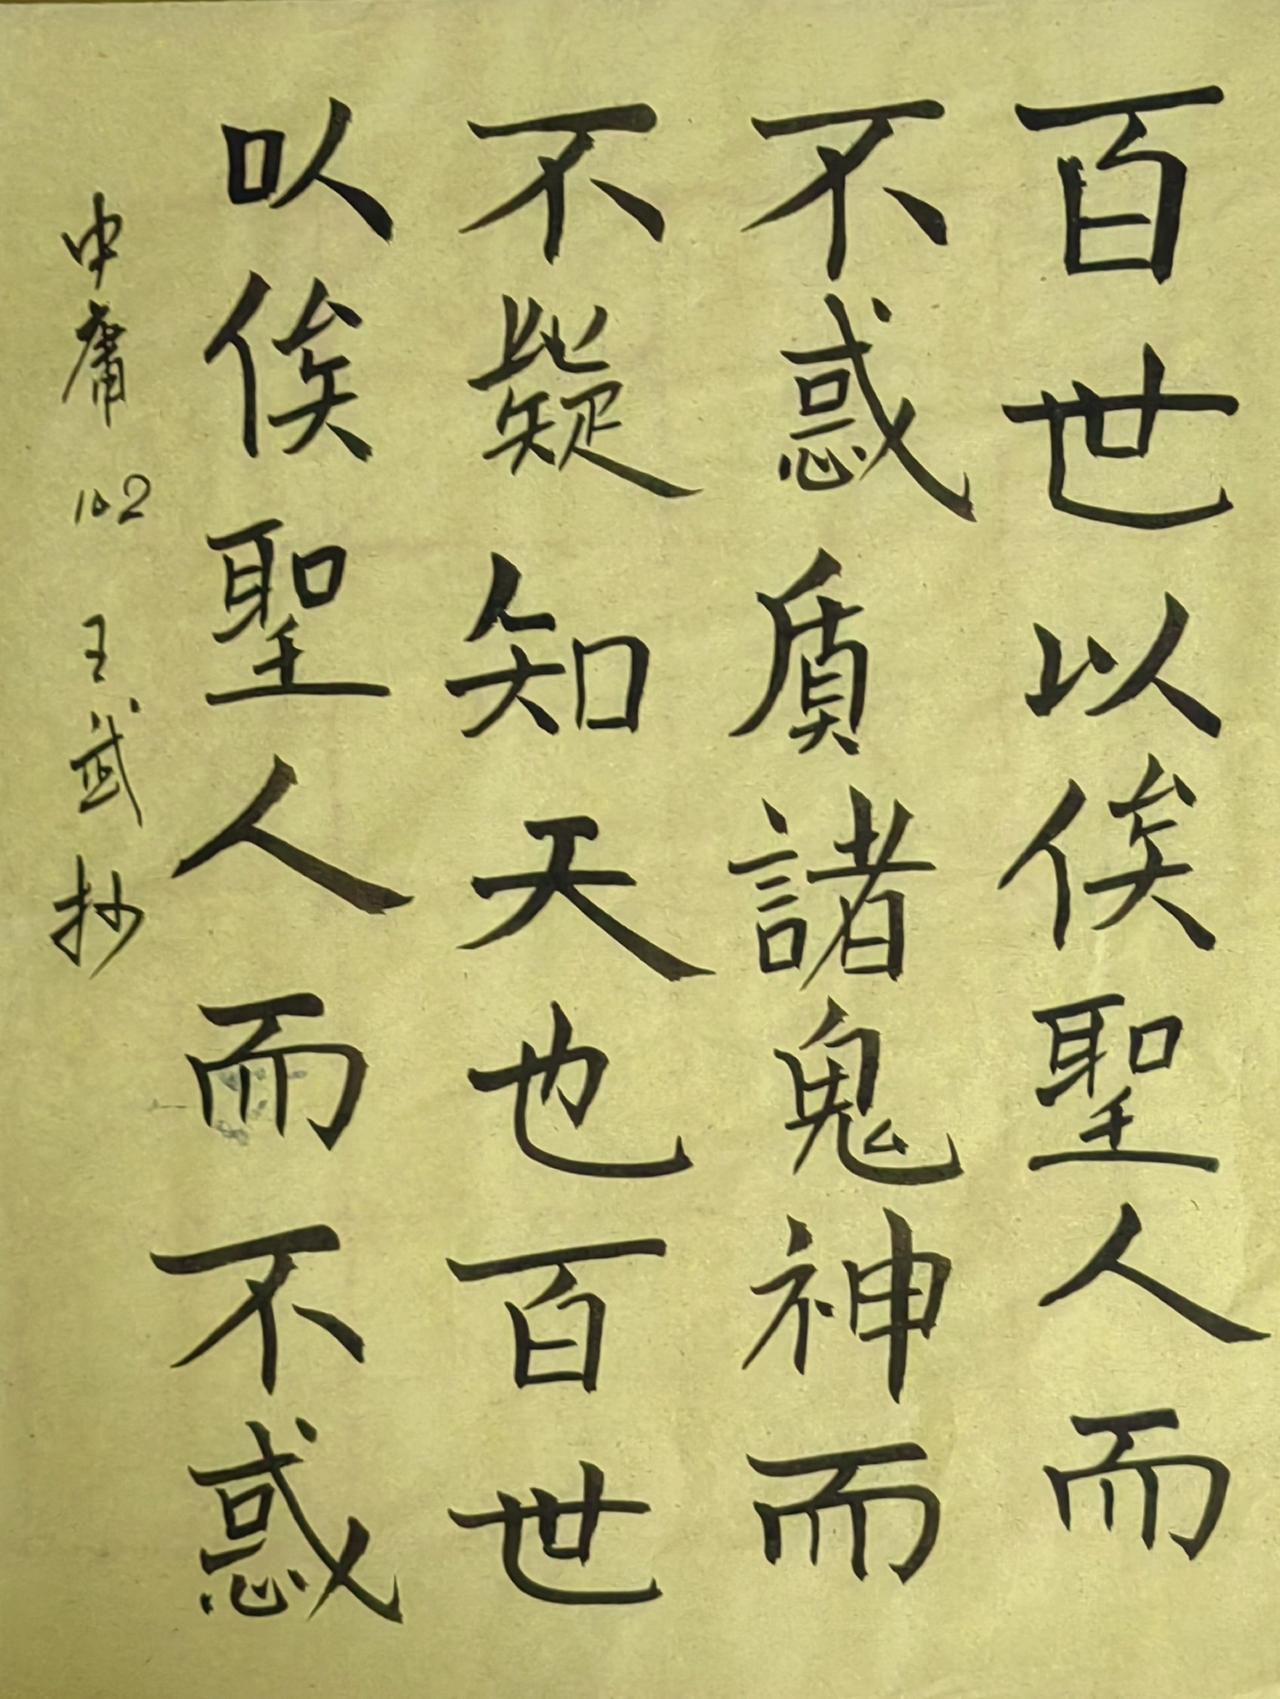 百世以俟聖人而
不惑質諸鬼神而
不疑知天也百世
以俟聖人而不惑
中庸 102 王武抄